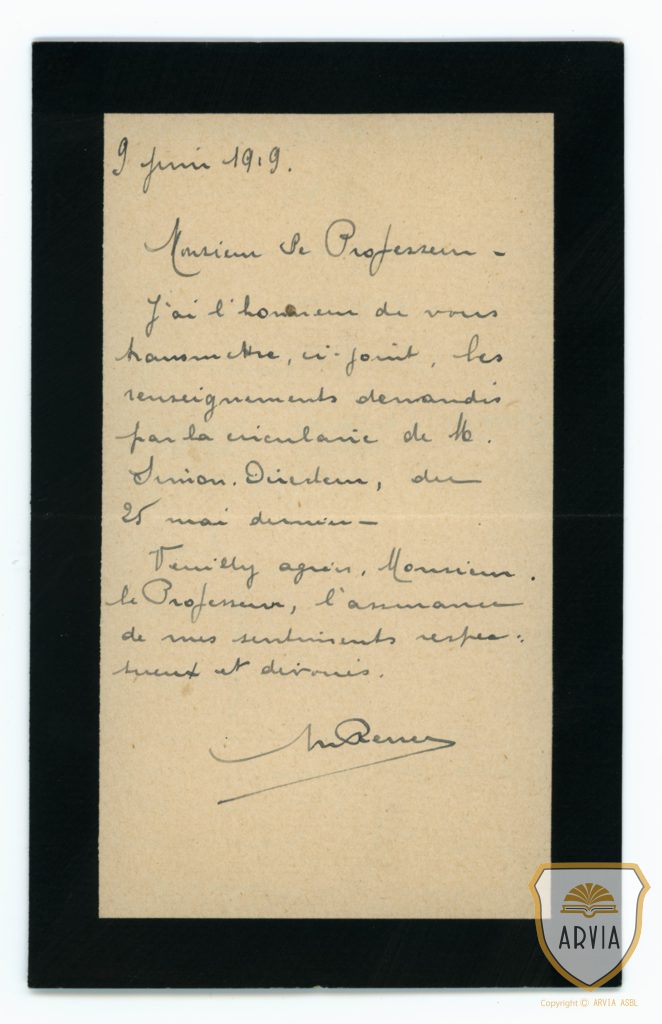 9 juin 1919.
Monsieur le Professeur –
J'ai l'honneur de vous
transmettre, ci-joint, les
renseignements demandés
par la circulaire de M.
Simon. Directeur, du
25 mai dernier –
Veuillez agréer, Monsieur
le Professeur, l'assurance
de mes sentiments respec-
tueux et dévoués.
ARVIA
Copyright © ARVIA ASBL